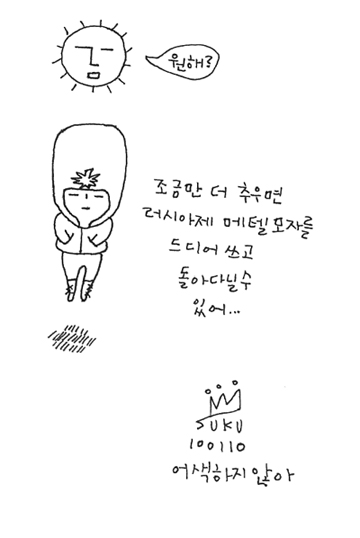 원해?
조금만 더 추우면
러시아제 메텔모자를
드디어 쓰고
돌아다닐수
있어...
SUKU
100110
어색하지않아